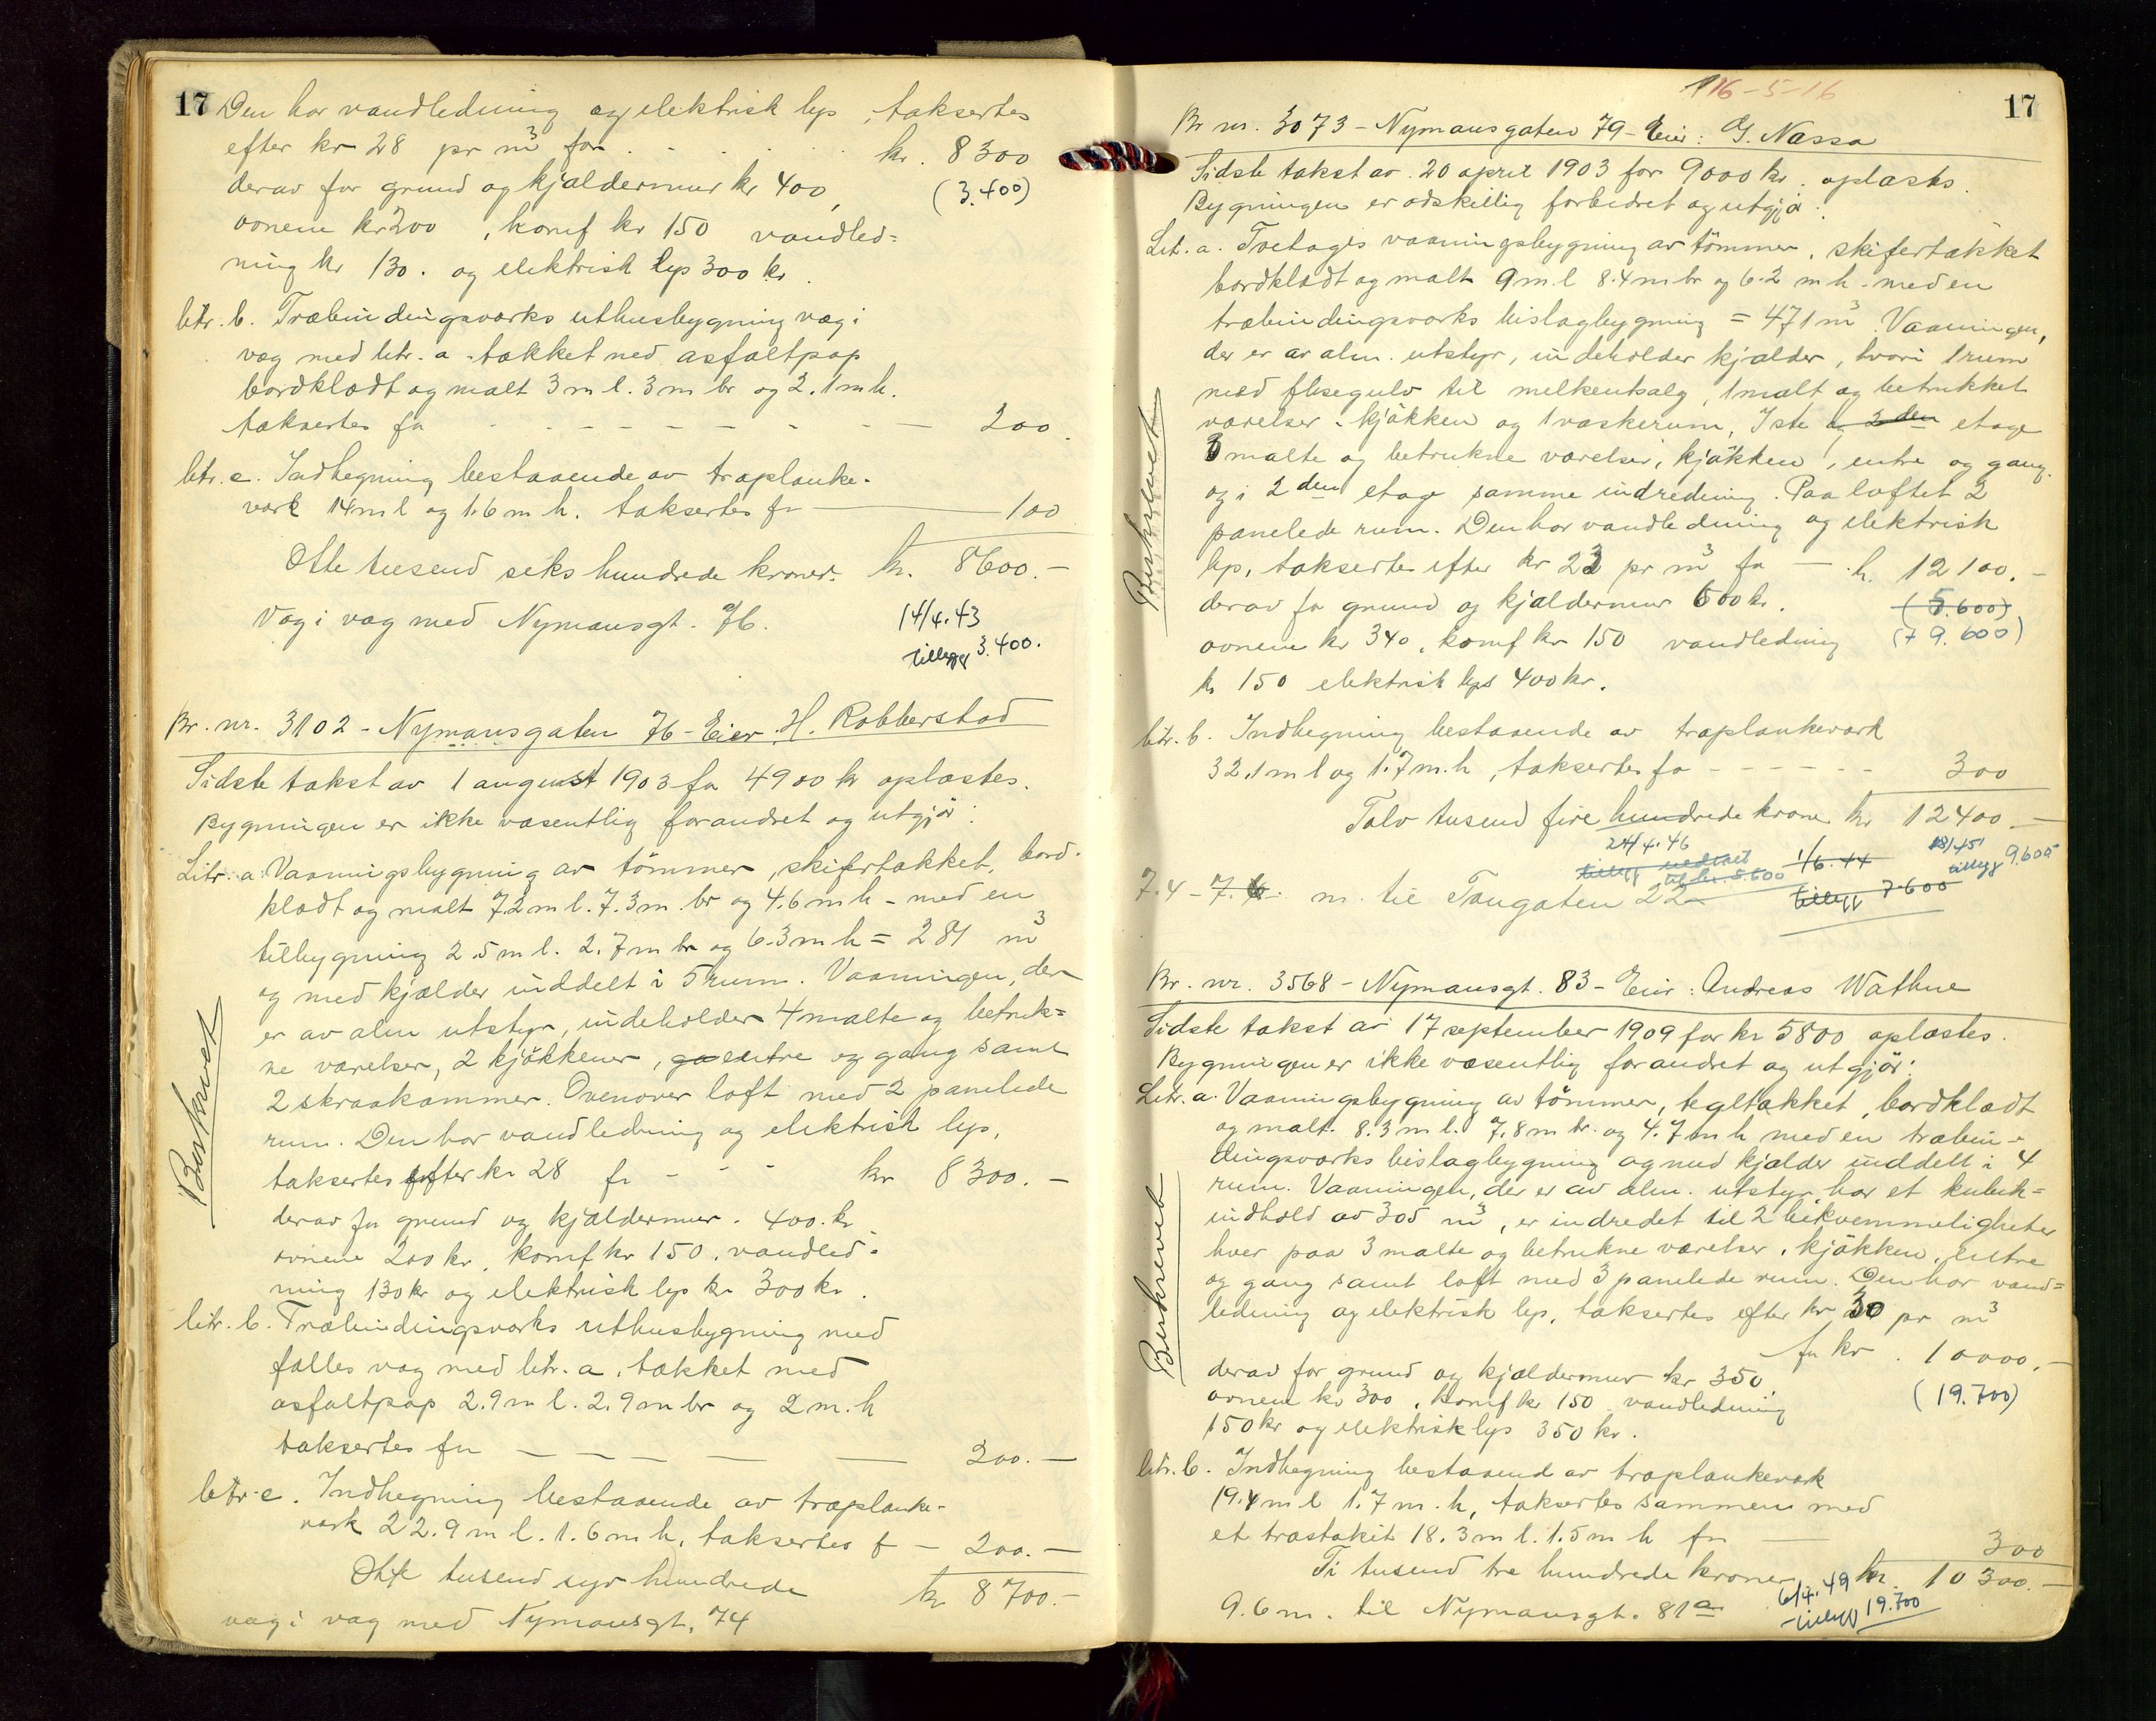 17
Den har vandledning og elektrisk lys, taksertes
efter kr 28 pr m³ for kr. 8300
derav for grund og kjældermur kr 400, (3.400)
ovnene kr 200, komf kr 150 vandled=
ning kr 130. og elektrisk lys 300 kr.
litr. b. Træbindingsværks uthusbygning væg i
væg med litr. a - tækket med asfaltpap
bordklædt og malt 3 m l. 3 m br og 2.1 m h.
taksertes for 200.
litr. c. Indhegning bestaaende av træplanke-
værk 14 m l og 1.6 m h. taksertes for 100
Otte tusend seks hundrede kroner. kr. 8600.-
Væg i væg med Nymansgt. 76. 14/4.43
tillegg 3.400.
Br. nr. 3102 - Nymansgaten 76 - Eier H. Robberstad
Sidste takst av 1 august 1903 for 4900 kr oplæstes.
Bygningen er ikke væsentlig forandret og utgjör:
Litr. a. Vaaningsbygning av tömmer, skifertækket, bord-
klædt og malt 7.2 m l. 7.3 m. br og 4.6 m h - med en
tilbygning 2.5 m l. 2.7 m br og 6.3 m h = 281 m³
og med kjælder inddelt i 5 rum. Vaaningen, der
er av alm utstyr, indeholder 4 malte og betruk=
ne værelser, 2 kjökkener, entre og gang samt
2 skraakammer. Ovenover loft med 2 panelede
rum. Den har vandledning og elektrisk lys,
taksertes efter kr 28 for - - - kr 8300.-
derav for grund og kjældermur. 400. kr
ovnene 200 kr, komf kr 150, vandled-
ning 130 kr og elektrisk lys kr 300 kr.
litr. b. Træbindingsværks uthusbygning med
fælles væg med litr. a, tækket med
asfaltpap 2.9 m l. 2.9 m br og 2 m. h
taksertes for 200.-
litr. c. Indhegning bestaaende av træplanke-
værk 22.9 m l. 1.6 m h, taksertes f - 200.-
Otte tusend syv hundrede kr 8700.-
væg i væg med Nymansgt. 74
Beskrevet
16-5-16
17
Br nr. 3073 - Nymansgaten 79 - Eier: G. Næssa
Sidste takst av 20 april 1903 for 9000 kr. oplæstes.
Bygningen er adskillig forbedret og utgjör:
Litr. a. Toetages vaaningsbygning av tömmer, skifertækket
bordklædt og malt 9 m. l 8.4 m br og 6.2 m h - med en
træbindingsværks bislagbygning = 471 m³. Vaaningen,
der er av alm. utstyr, indeholder kjælder, hvori 1 rum
med flisegulv til melkeutsalg, 1 malt og betrukket
værelser, kjökken og 1 vaskerum, 1ste og 2den etage
3 malte og betrukne værelser, kjökken, entre og gang.
og i 2den etage samme indredning. Paa loftet 2
panelede rum. Den har vandledning og elektrisk
lys, taksertes efter kr 23 pr m³ for - kr. 12100.-
derav for grund og kjældermur 600 kr. (5.600)
ovnene kr 340, komf kr 150 vandledning (+ 9.600)
kr 150 elektrisk lys 400 kr.
litr. b. Indhegning bestaaende av træplankeværk
32.1 m l og 1.7 m. h, taksertes for - - - - - 300
Tolv tusend fire hundrede kroner kr 12400.-
24/4.46 1/6.44 18/1 45
tillegg nedsat til kr. 5.600 tillegg 7.600 tillegg 9.600
7.4 - m. til Taugaten 22
Br. nr. 3568 - Nymansgt. 83 - Eier: Andreas Wathne
Sidste takst av 17 september 1909 for kr 5800 oplæstes.
Bygningen er ikke væsentlig forandret og utgjör:
Litr. a. Vaaningsbygning av tömmer, tegltækket, bordklædt
og malt. 8.3 m l. 7.8 m br. og 4.7 m h med en træbin-
dingsværks bislagbygning og med kjælder inddelt i 4
rum. Vaaningen, der er av alm. utstyr, har et kubik=
indhold av 305 m³, er indredet til 2 bekvemmeligheter
hver paa 3 malte og betrukne værelser, kjökken, entre
og gang samt loft med 3 panelede rum. Den har vand=
ledning og elektrisk lys, taksertes efter kr 30 pr m³
for kr. 10000.-
derav for grund og kjældermur kr 350, (19.700)
ovnene kr 300, komf kr 150 vandledning
150 kr og elektrisk lys 350 kr.
litr. b. Indhegning bestaaend av træplankeværk
19.4 m l 1.7 m. h, taksertes sammen med
et træstakit 18.3 m l. 1.5 m h for 300
Ti tusend tre hundrede kroner kr. 10300.-
9.6 m. til Nymansgt. 81a 6/4.49
tillegg 19.700
Beskrevet
Beskrevet